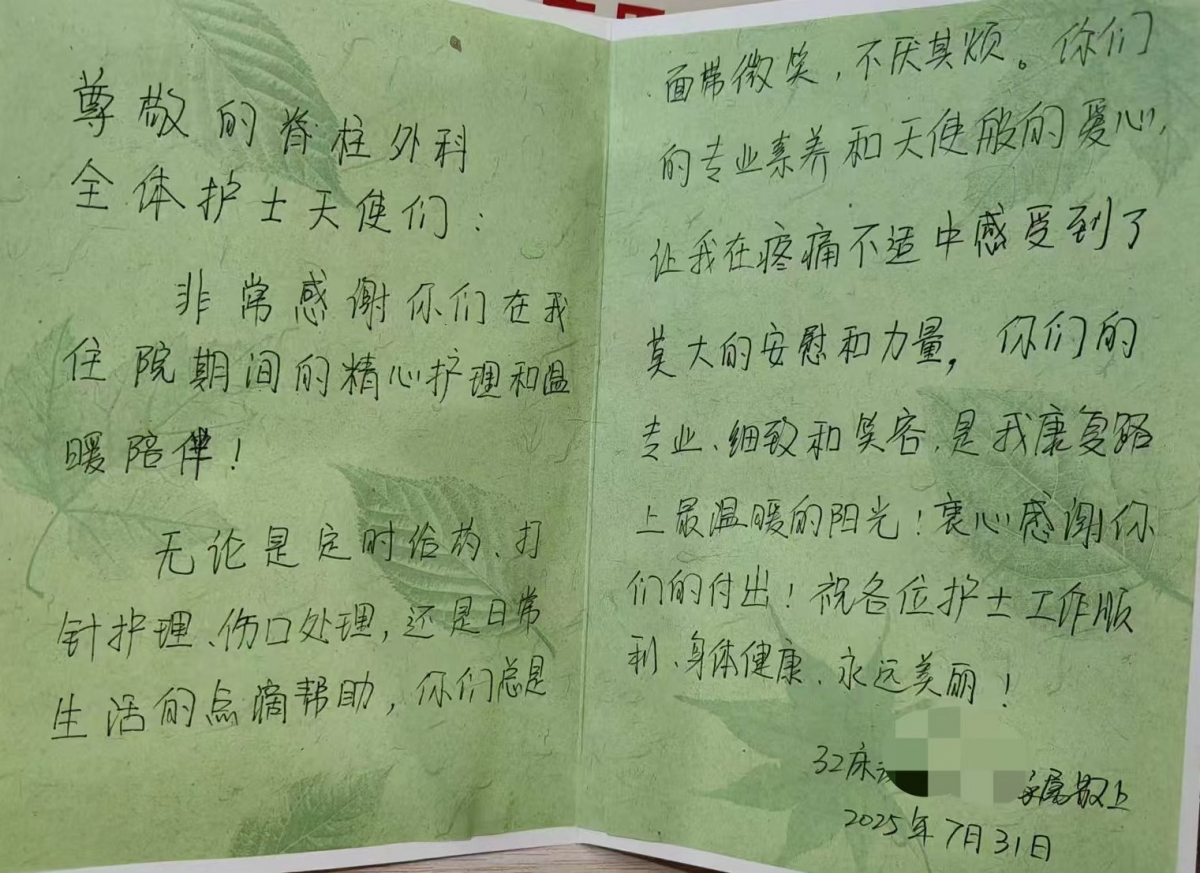 尊敬的脊柱外科
全体护士天使们:
非常感谢你们在我
住院期间的精心护理和温
暖陪伴!
无论是定时给药、打
针护理、伤口处理,还是日常
生活的点滴帮助,你们总是
面带微笑,不厌其烦。你们
的专业素养和天使般的爱心,
让我在疼痛不适中感受到了
莫大的安慰和力量。你们的
专业、细致和笑容,是我康复路
上最温暖的阳光!衷心感谢你
们的付出!祝各位护士工作顺
利、身体健康、永远美丽!
32床 家属敬上
2025年7月31日